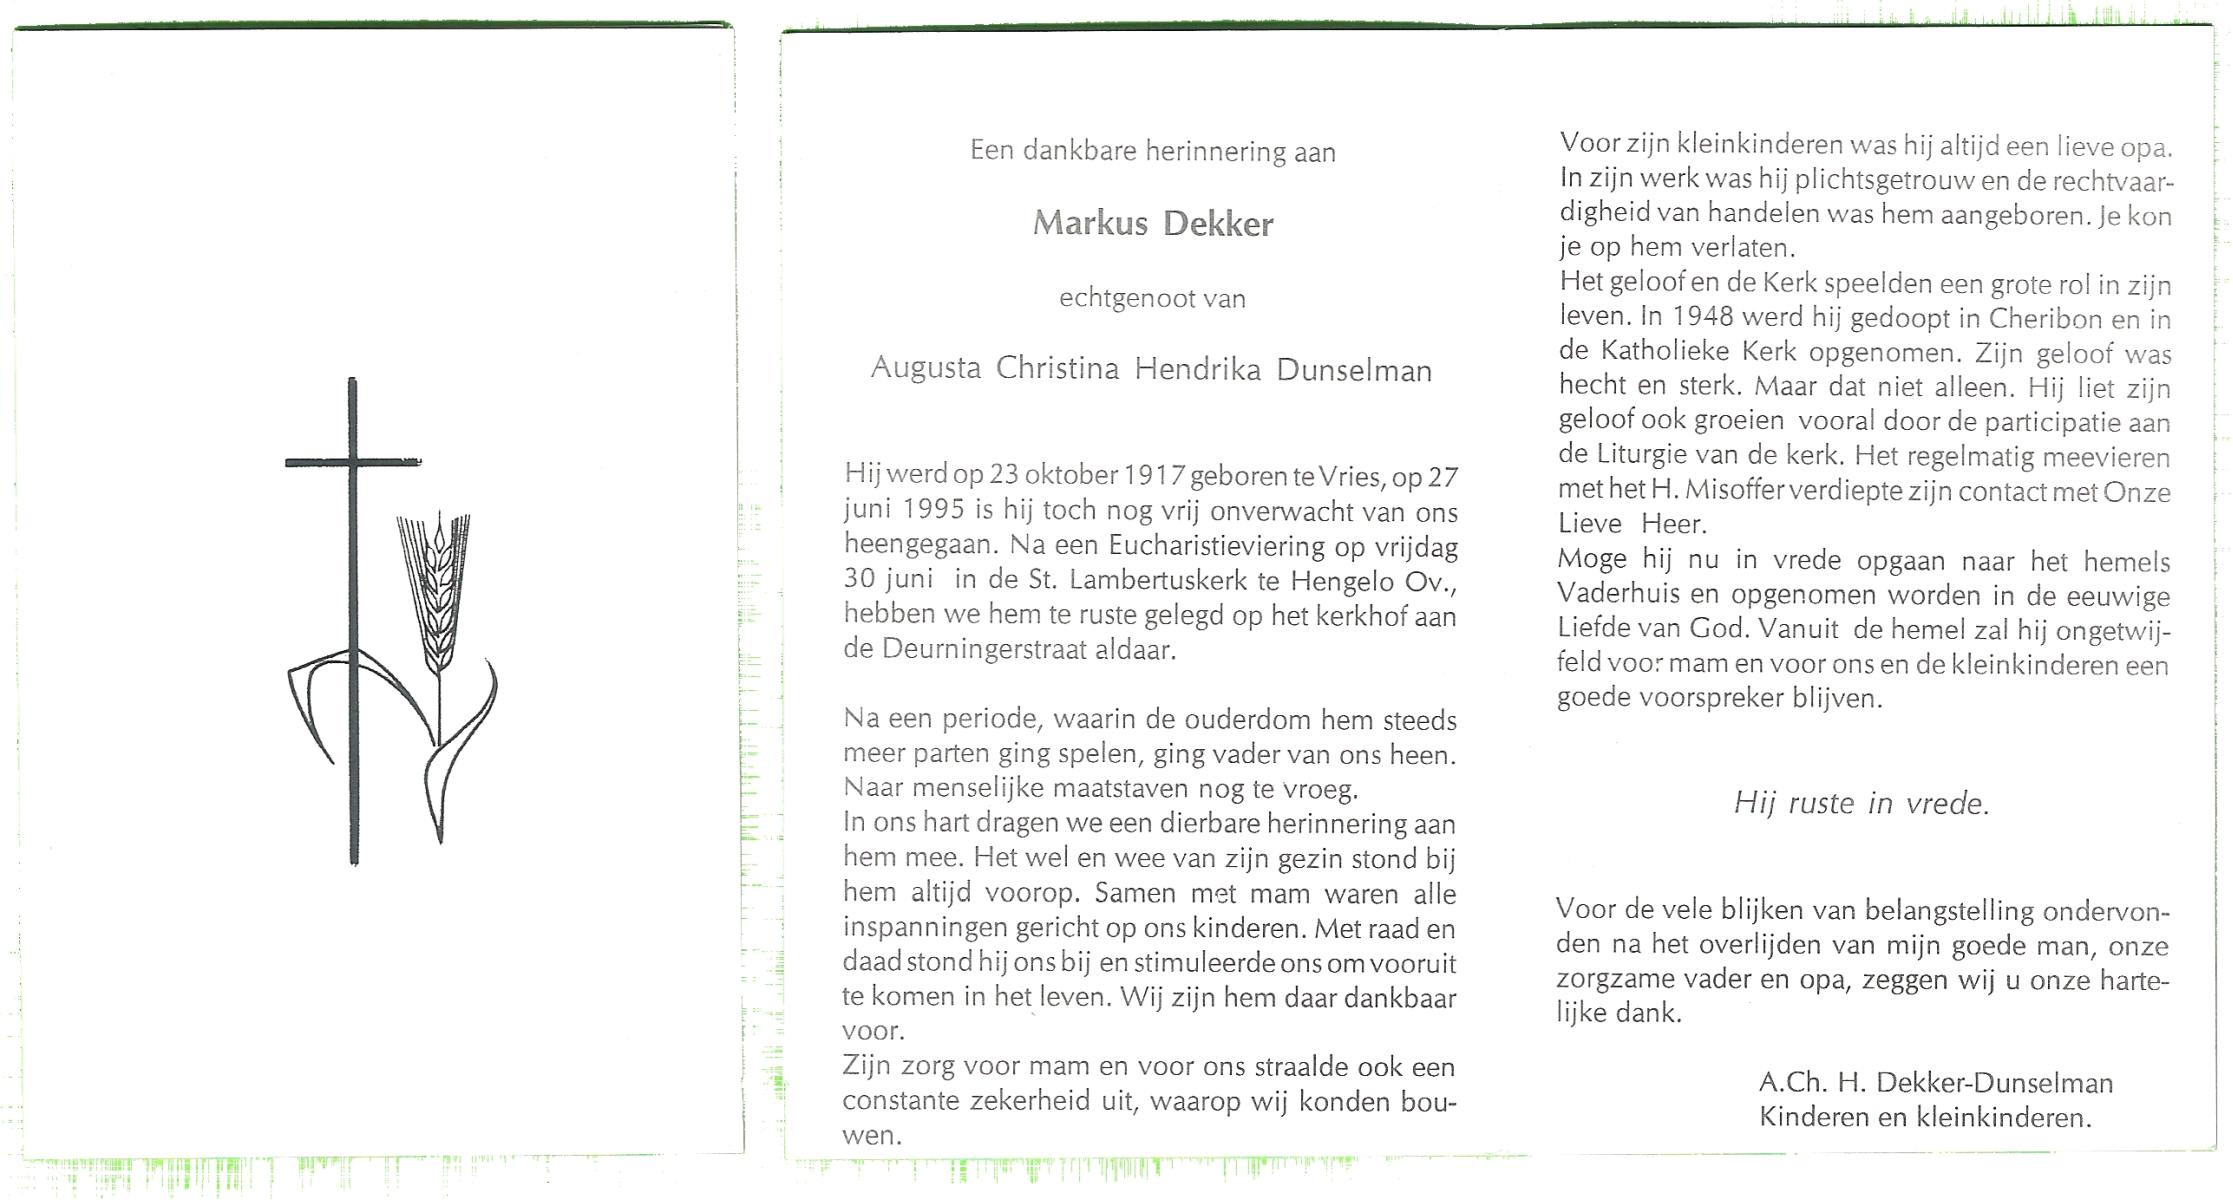 Een dankbare herinnering aan
Markus Dekker
echtgenoot van
Augusta Christina Hendrika Dunselman
Hij werd op 23 oktober 1917 geboren te Vries, op 27
juni 1995 is hij toch nog vrij onverwacht van ons
heengegaan. Na een Eucharistieviering op vrijdag
30 juni in de St. Lambertuskerk te Hengelo Ov.,
hebben we hem te ruste gelegd op het kerkhof aan
de Deurningerstraat aldaar.
Na een periode, waarin de ouderdom hem steeds
meer parten ging spelen, ging vader van ons heen.
Naar menselijke maatstaven nog te vroeg.
In ons hart dragen we een dierbare herinnering aan
hem mee. Het wel en wee van zijn gezin stond bij
hem altijd voorop. Samen met mam waren alle
inspanningen gericht op ons kinderen. Met raad en
daad stond hij ons bij en stimuleerde ons om vooruit
te komen in het leven. Wij zijn hem daar dankbaar
voor.
Zijn zorg voor mam en voor ons straalde ook een
constante zekerheid uit, waarop wij konden bou-
wen.
Voor zijn kleinkinderen was hij altijd een lieve opa.
In zijn werk was hij plichtsgetrouw en de rechtvaar-
digheid van handelen was hem aangeboren. Je kon
je op hem verlaten.
Het geloof en de Kerk speelden een grote rol in zijn
leven. In 1948 werd hij gedoopt in Cheribon en in
de Katholieke Kerk opgenomen. Zijn geloof was
hecht en sterk. Maar dat niet alleen. Hij liet zijn
geloof ook groeien vooral door de participatie aan
de Liturgie van de kerk. Het regelmatig meevieren
met het H. Misoffer verdiepte zijn contact met Onze
Lieve Heer.
Moge hij nu in vrede opgaan naar het hemels
Vaderhuis en opgenomen worden in de eeuwige
Liefde van God. Vanuit de hemel zal hij ongetwij-
feld voor mam en voor ons en de kleinkinderen een
goede voorspreker blijven.
Hij ruste in vrede.
Voor de vele blijken van belangstelling ondervon-
den na het overlijden van mijn goede man, onze
zorgzame vader en opa, zeggen wij u onze harte-
lijke dank.
A.Ch. H. Dekker-Dunselman
Kinderen en kleinkinderen.